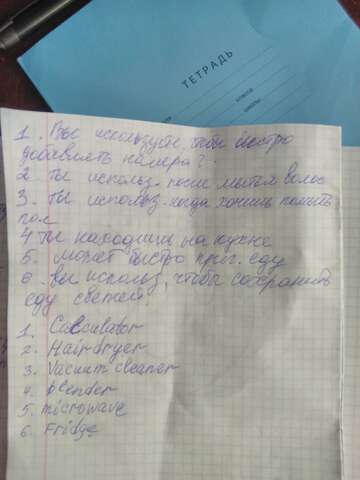 ТЕТРАДЬ
КЛАССА
ШКОЛЫ
1. Вы используете, чтобы быстро
добавлять номера?
2. Ты использ. после мытья волос
3. Ты использ. когда хочешь помыть
пол
4 Ты находишь на кухне
5. может быстро приг. еду
6. вы использ, чтобы сохранить
еду свежей.
1. Calculator
2. Hairdryer
3. Vacuum cleaner
4. blender
5. microwave
6. Fridge